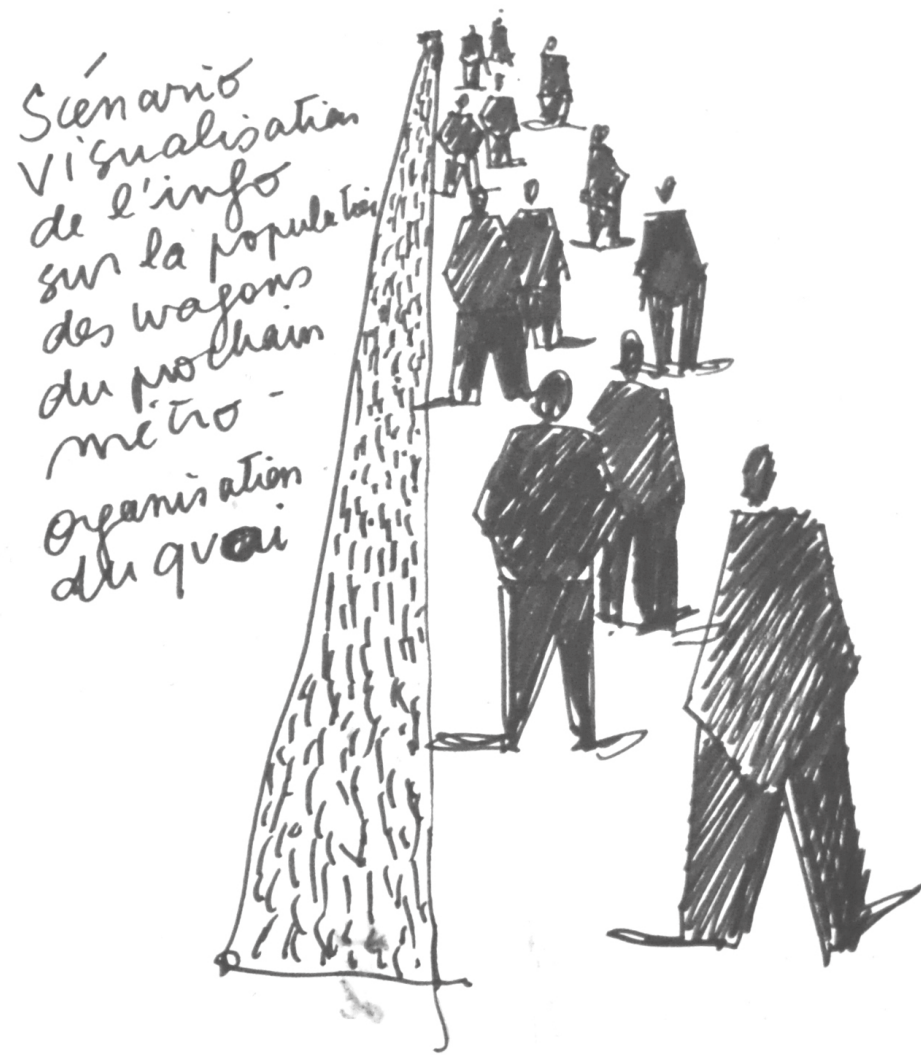 Scénario
visualisation
de l'info
sur la population
des wagons
du prochain
métro -
organisation
du quai